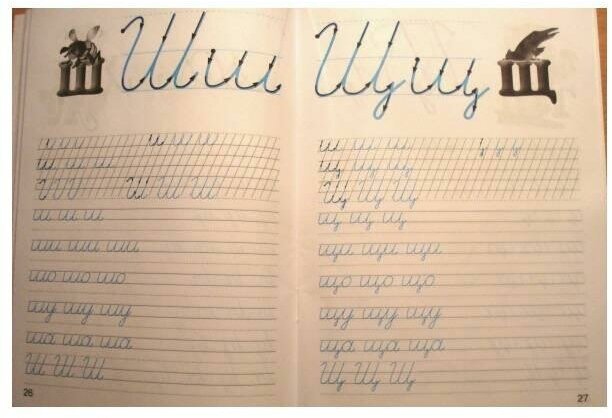 Ш Ш ш
и и и и и и
ш ш ш
Ш Ш Ш
ш ш ш
ши ши ши
шо шо шо
шу шу шу
ша ша ша
Ш Ш Ш
26
Щ щ Щ
ш ш ш
щ щ щ
Щ Щ Щ
щ щ щ
щи щи щи
що що що
щу щу щу
ща ща ща
Щ Щ Щ
27